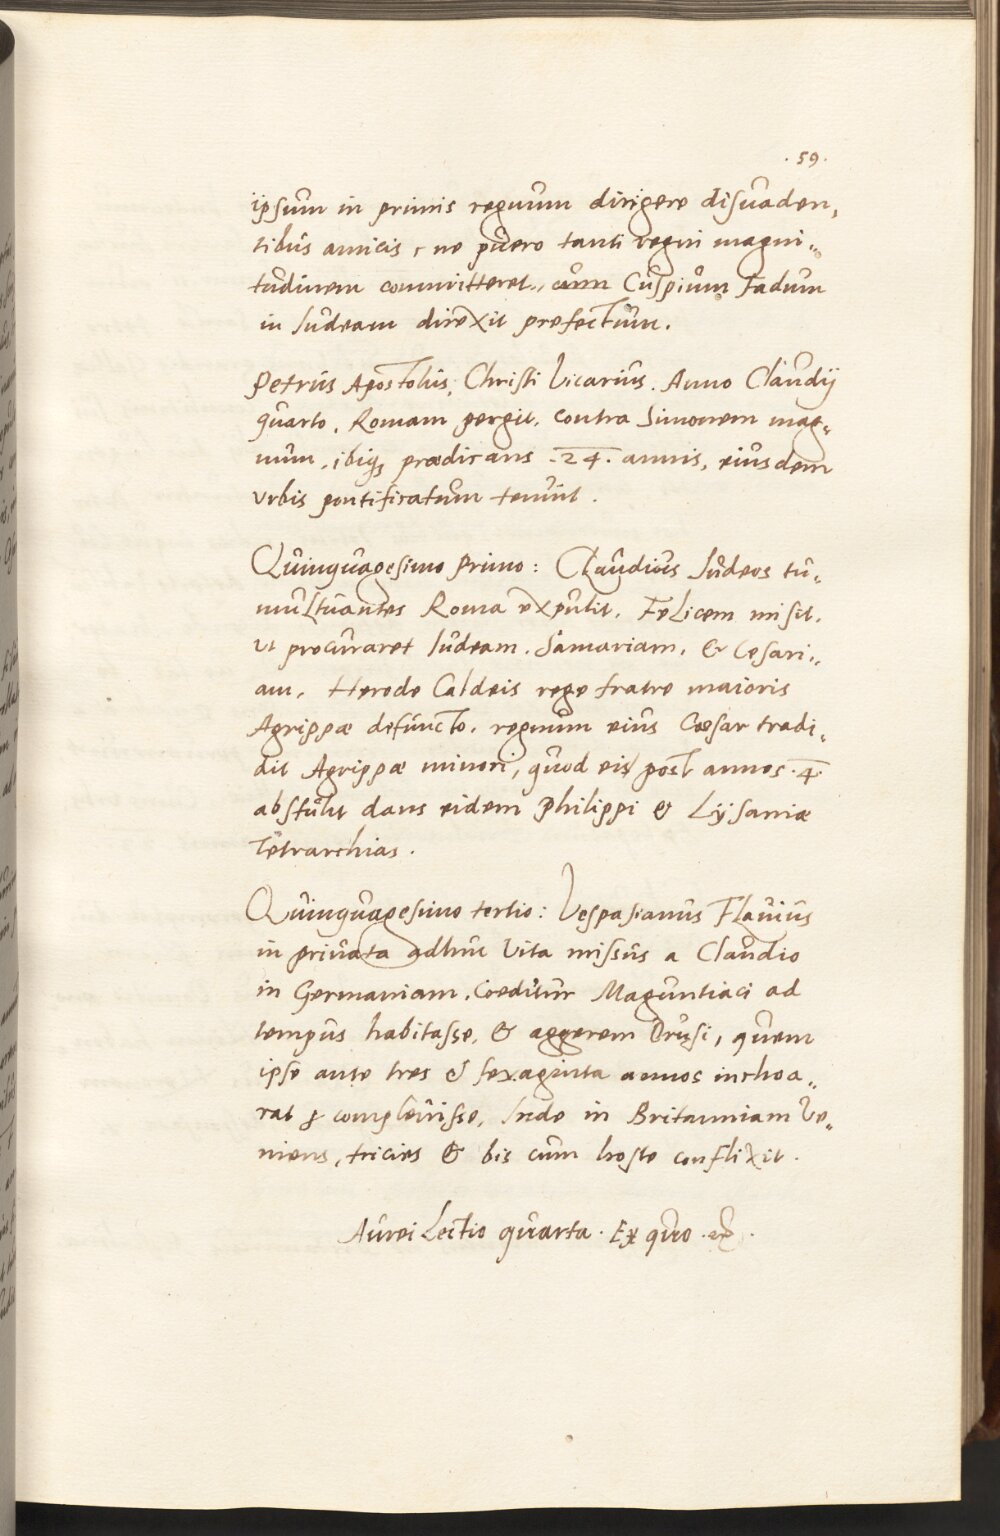 · 59 ·
ipsum in primis regnum dirigere disuaden,
tibus amicis, ne puero tanti regni magni„
tudinem committeret., cum Cuspium Fadum
in Iudeam direxit prefectum.
Petrus Apostolus, Christi Vicarius. Anno Claudij
quarto, Romam pergit, contra Simonem mag„
num, ibiq3 prædicans .24. annis, eiusdem
Vrbis pontificatum tenuit.
Quinquagesimo primo: Claudius Iudeos tu„
multuantes Roma expulit, Felicem misit,
ut procuraret Iudeam, Samariam, & Cesari„
am, Herode Caldeis rege fratre maioris
Agrippæ defuncto, regnum eius Cæsar tradi„
dit Agrippæ minori, quod eis post annos .4.
abstulit dans eidem Philippi & Lysaniæ
Tetrarchias.
Quinquagesimo tertio: Vespasianus Flauius
in priuata adhuc Vita missus a Claudio
in Germaniam, Creditur Maguntiaci ad
tempus habitasse, & aggerem Drusi, quem
ipse ante tres & sexaginta annos inchoa„
rat compleuisse, Inde in Britanniam Ve„
niens, tricies & bis cum hoste conflixit.
Aurei Lectio quarta. Ex quo